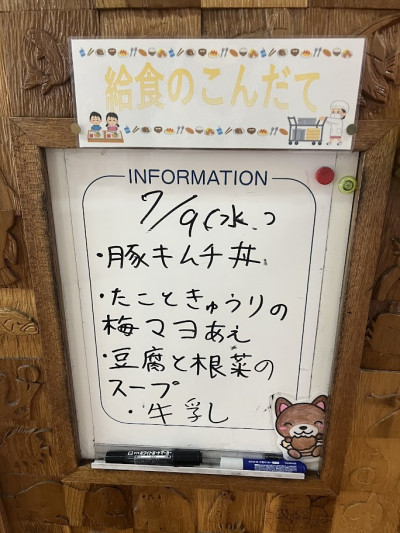 給食のこんだて
INFORMATION
7/9(水)
・豚キムチ丼
・たこときゅうりの
梅マヨあえ
・豆腐と根菜の
スープ
・牛乳